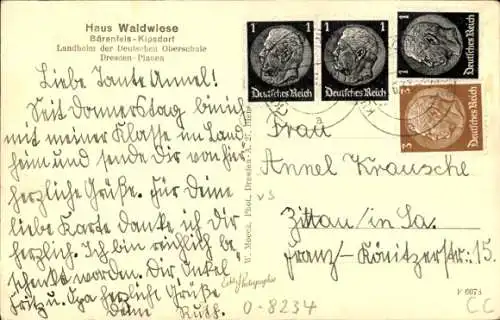 Haus Waldwiese
Bärenfels-Kipsdorf
Landheim der Deutschen Oberschule
Dresden-Plauen
Liebe Tante Annel!
Seit Donnerstag bin ich
mit meiner Klasse im Land
heim und sende dir von hier
herzliche Grüße. Für Deine
liebe Karte danke ich dir
herzlich. Ich bin reichlich be
schenkt worden. Dir, Onkel
Fritz u. Opa herzliche Grüße
Deine Ruth.
W. Moock, Phot., Dresden-A. 27,
Echte Photographie
1 1
Deutsches Reich
1 1
Deutsches Reich
1
Deutsches Reich
3 3
Deutsches Reich
a
Frau
Annel Krausche
Zittau/in Sa.
Franz-Könitzerstr: 15.
vs
F 6673
0-8234
CC